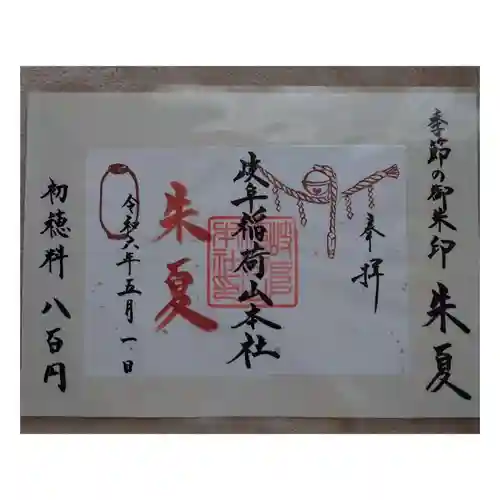 季節の御朱印 朱夏
奉拝
岐阜稲荷山本社
朱夏
令和六年五月一日
初穂料 八百円